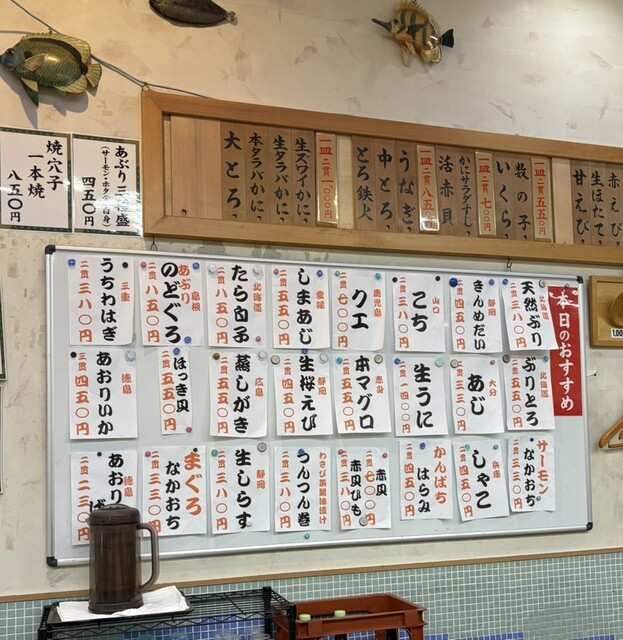 焼穴子
一本焼
八五〇円
あぶり三
盛
(サーモン・ホタ
白身)
四五〇円
赤えび、
生ほたて、
甘えび、
一皿 二貫 五五〇円
数の子、
いくら、
一皿 二貫 七〇〇円
かにサラダすし、
活赤貝
一皿 二貫 八五〇円
うなぎ、
中とろ、
とろ鉄火
一皿 二貫 一、〇〇〇円
生ズワイかに、
生タラバかに、
本タラバかに、
大とろ、
本日のおすすめ
北海道
天然ぶり
静岡
きんめだい
二貫 四五〇円
山口
こち
鹿児島
クエ
二貫 七〇〇円
愛媛
しまあじ
二貫 五五〇円
北海道
たら白子
島根
あぶり
のどぐろ
二貫 八五〇円
三重
うちわはぎ
北海道
ぶりとろ
二貫 五五〇円
大分
あじ
二貫 三三〇円
生うに
赤身
本マグロ
二貫 五五〇円
静岡
生桜えび
広島
蒸しがき
二貫 五五〇円
ほっき貝
二貫 五五〇円
徳島
あおりいか
サーモン
なかおち
二貫 三三〇円
兵庫
しゃこ
二貫 四五〇円
かんぱち
はらみ
二貫 四五〇円
赤貝
二貫 七〇〇円
赤貝ひも
二貫 三八〇円
わさび茎醤油漬け
つんつん巻
三八〇円
静岡
生しらす
二貫 三八〇円
まぐろ
なかおち
徳島
あおり